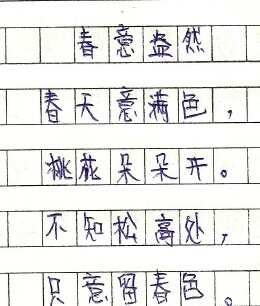 春意盎然
春天意满色，
桃花朵朵开。
不知松高处，
只意留春色。